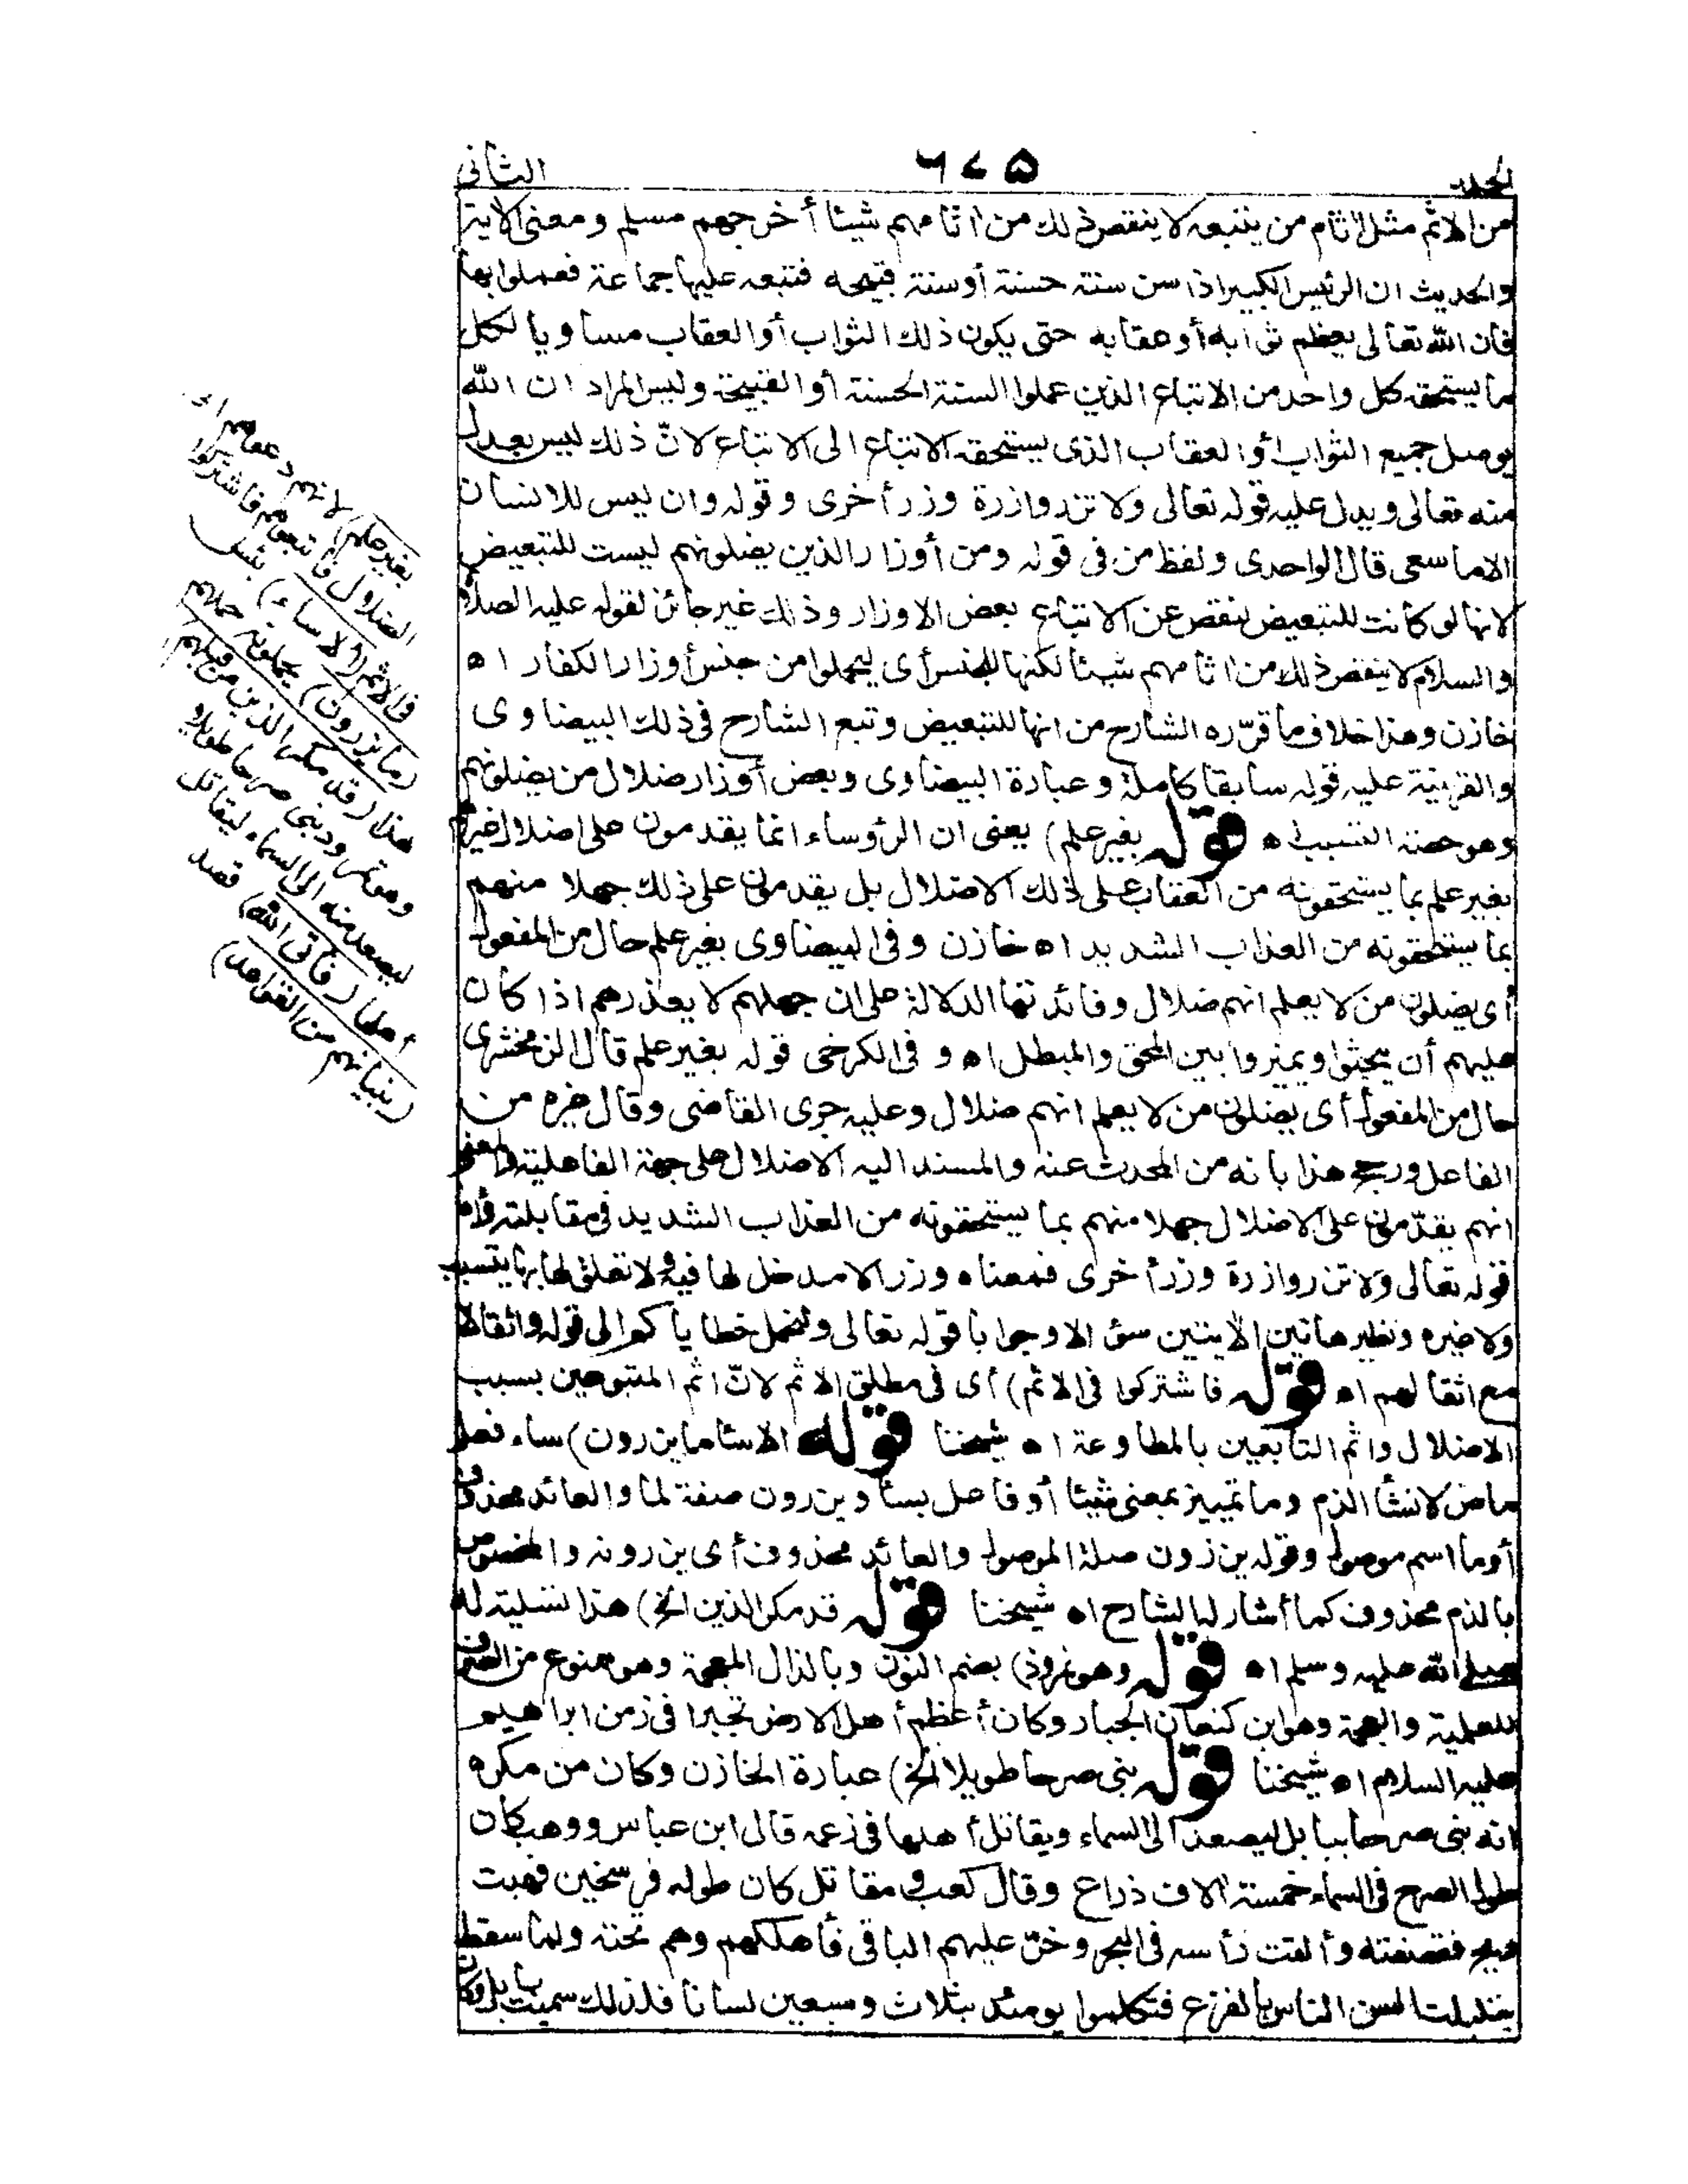 الجلد ٦٧٥ الثانى
من الاثم مثل اثام من يتبعه لا ينقص ذلك من اثامهم شيئا أخرجهم مسلم ومعنى الاية
والحديث ان الرئيس الكبير اذا سن سنة حسنة أو سنة قبيحه فتبعه عليها جماعة فعملوا بها
فان الله تعالى يعظم ثوابه أو عقابه حتى يكون ذلك الثواب أو العقاب مساويا لكل
ما يستحقه كل واحد من الاتباع الذين عملوا السنة الحسنة أو القبيحة وليس المراد ان الله
يوصل جميع الثواب أو العقاب الذى يستحقه الاتباع الى الاتباع لانّ ذلك ليس بعدل
منه تعالى ويدل عليه قوله تعالى ولا تزر وازرة وزر أخرى وقوله وان ليس للانسان
الا ما سعى قال الواحدى ولفظ من فى قوله ومن أوزار الذين يضلونهم ليست للتبعيض
لانها لو كانت للتبعيض لنقص عن الاتباع بعض الاوزار وذلك غير جائز لقوله عليه الصلاة
والسلام لا ينقص ذلك من اثامهم شيئا لكنها للجنس أى ليحملوا من جنس أوزار الكفار اه
خازن وهذا خلاف ما قرّره الشارح من انها للتبعيض وتبع الشارح فى ذلك البيضاوى
والقرينة عليه قوله سابقا كاملة وعبارة البيضاوى وبعض أوزار ضلال من يضلونهم
وهو حصة التسبب اه قوله بغير علم) يعنى ان الرؤساء انما يقدمون على اضلال غيرهم
بغير علم بما يستحقونه من العقاب على ذلك الاضلال بل يقدمون على ذلك جهلا منهم
بما يستحقونه من العذاب الشديد اه خازن وفى البيضاوى بغير علم حال من المفعول
أى يضلون من لا يعلم انهم ضلال وفائدتها الدلالة على ان جهلهم لا يعذرهم اذا كان
عليهم أن يبحثوا ويميزوا بين المحق والمبطل اه و فى الكرخى قوله بغير علم قال الزمخشرى
حال من المفعول أى يضلون من لا يعلم انهم ضلال وعليه جرى القاضى وقال غيره من
الفاعل ورجح هذا بانه من المحدث عنه والمسند اليه الاضلال على جهة الفاعلية والمعنى
انهم يقدّمون على الاضلال جهلا منهم بما يستحقونه من العذاب الشديد فى مقابلته وأما
قوله تعالى ولا تزر وازرة وزر أخرى فمعناه وزرا لا مدخل لها فيه ولا تعلق لها به بتسبب
ولا غيره ونظير هاتين الايتين سؤالا وجوابا قوله تعالى ولنحمل خطاياكم الى قوله واثقالا
مع اثقالهم اه قوله فاشتركوا فى الاثم) أى فى مطلق الاثم لانّ اثم المتبوعين بسبب
الاضلال واثم التابعين بالمطاوعة اه شيخنا قوله الا ساء ما يزرون) ساء فعل
ماض لانشأ الذم وما تمييز بمعنى شيئا أو فاعل بسأ ويزرون صفة لما والعائد محذوف
أو ما اسم موصول وقوله يزرون صلة الموصول والعائد محذوف أى يزرونه والمخصوص
بالذم محذوف كما أشار له الشارح اه شيخنا قوله قد مكر الذين الخ) هذا تسلية له
صلى الله عليه وسلم اه قوله وهو نمروذ) بضم النون وبالذال المعجمة وهو ممنوع من الصرف
للعلمية والعجمة وهو ابن كنعان الجبار وكان أعظم أهل الارض تجبرا فى زمن ابراهيم
عليه السلام اه شيخنا قوله بنى صرحا طويلا الخ) عبارة الخازن وكان من مكره
انه بنى صرحا ببابل ليصعد الى السماء ويقاتل أهلها فى زعمه قال ابن عباس ووهب كان
طول الصرح فى السماء خمسة الاف ذراع وقال كعب ومقاتل كان طوله فرسخين فهبت
ريح فقصفته وألقت رأسه فى البحر وخرّ عليهم الباقى فأهلكهم وهم تحته ولما سقط
تبلبلت السن الناس بالفزع فتكلموا يومئذ بثلاث وسبعين لسانا فلذلك سميت بابل وكان
بغير علم) لانهم دعوهم الى
الضلال فاتبعوهم فاشتركوا
فى الاثم (ألا ساء) بئس
(ما يزرون) يحملونه حملهم
هذا (قد مكر الذين من قبلهم)
وهو نمروذ بنى صرحا طويلا
ليصعد منه الى السماء ليقاتل
أهلها (فأتى الله) قصد
(بنيانهم من القواعد)